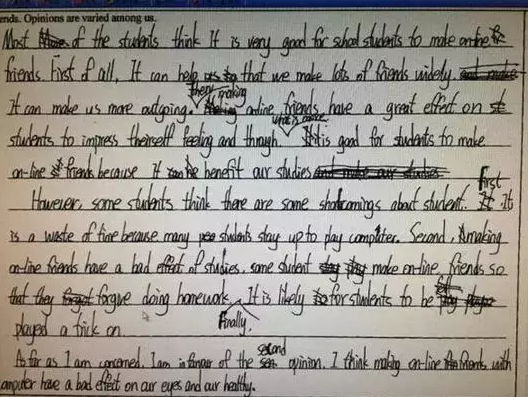 ends. Opinions are varied among us.
Most of the students think It is very good for school students to make on-line
friends. First of all, It can help us that we make lots of friends widely.
then, making
It can make us more outgoing. on-line friends have a great effect on
what's more
students to impress theirself feeling and through. It is good for students to make
on-line friends because It can be benefit our studies
First
However, some students think there are some shortcomings about student. It
is a waste of time because many students stay up to play computer. Second, making
on-line friends have a bad effect of studies. some student make on-line friends so
that they forgive doing homework. It is likely for students to be
Finally.
played a trick on
second
As far as I am concerned. I am in favour of the opinion. I think making on-line friends with
computer have a bad effect on our eyes and our healthy.